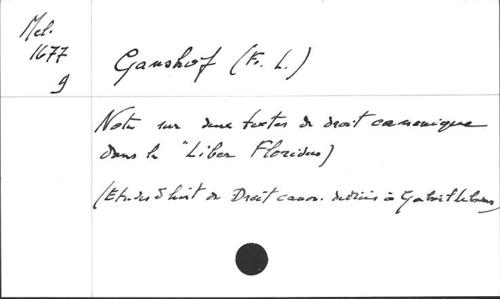 Mel.
1677
9
Ganshof (Fr. L.)
Note sur deux textes de droit canonique
dans le "Liber Floridus)
(Etudes d'hist. de Droit canon. dédiées à Gabriel Le Bras)